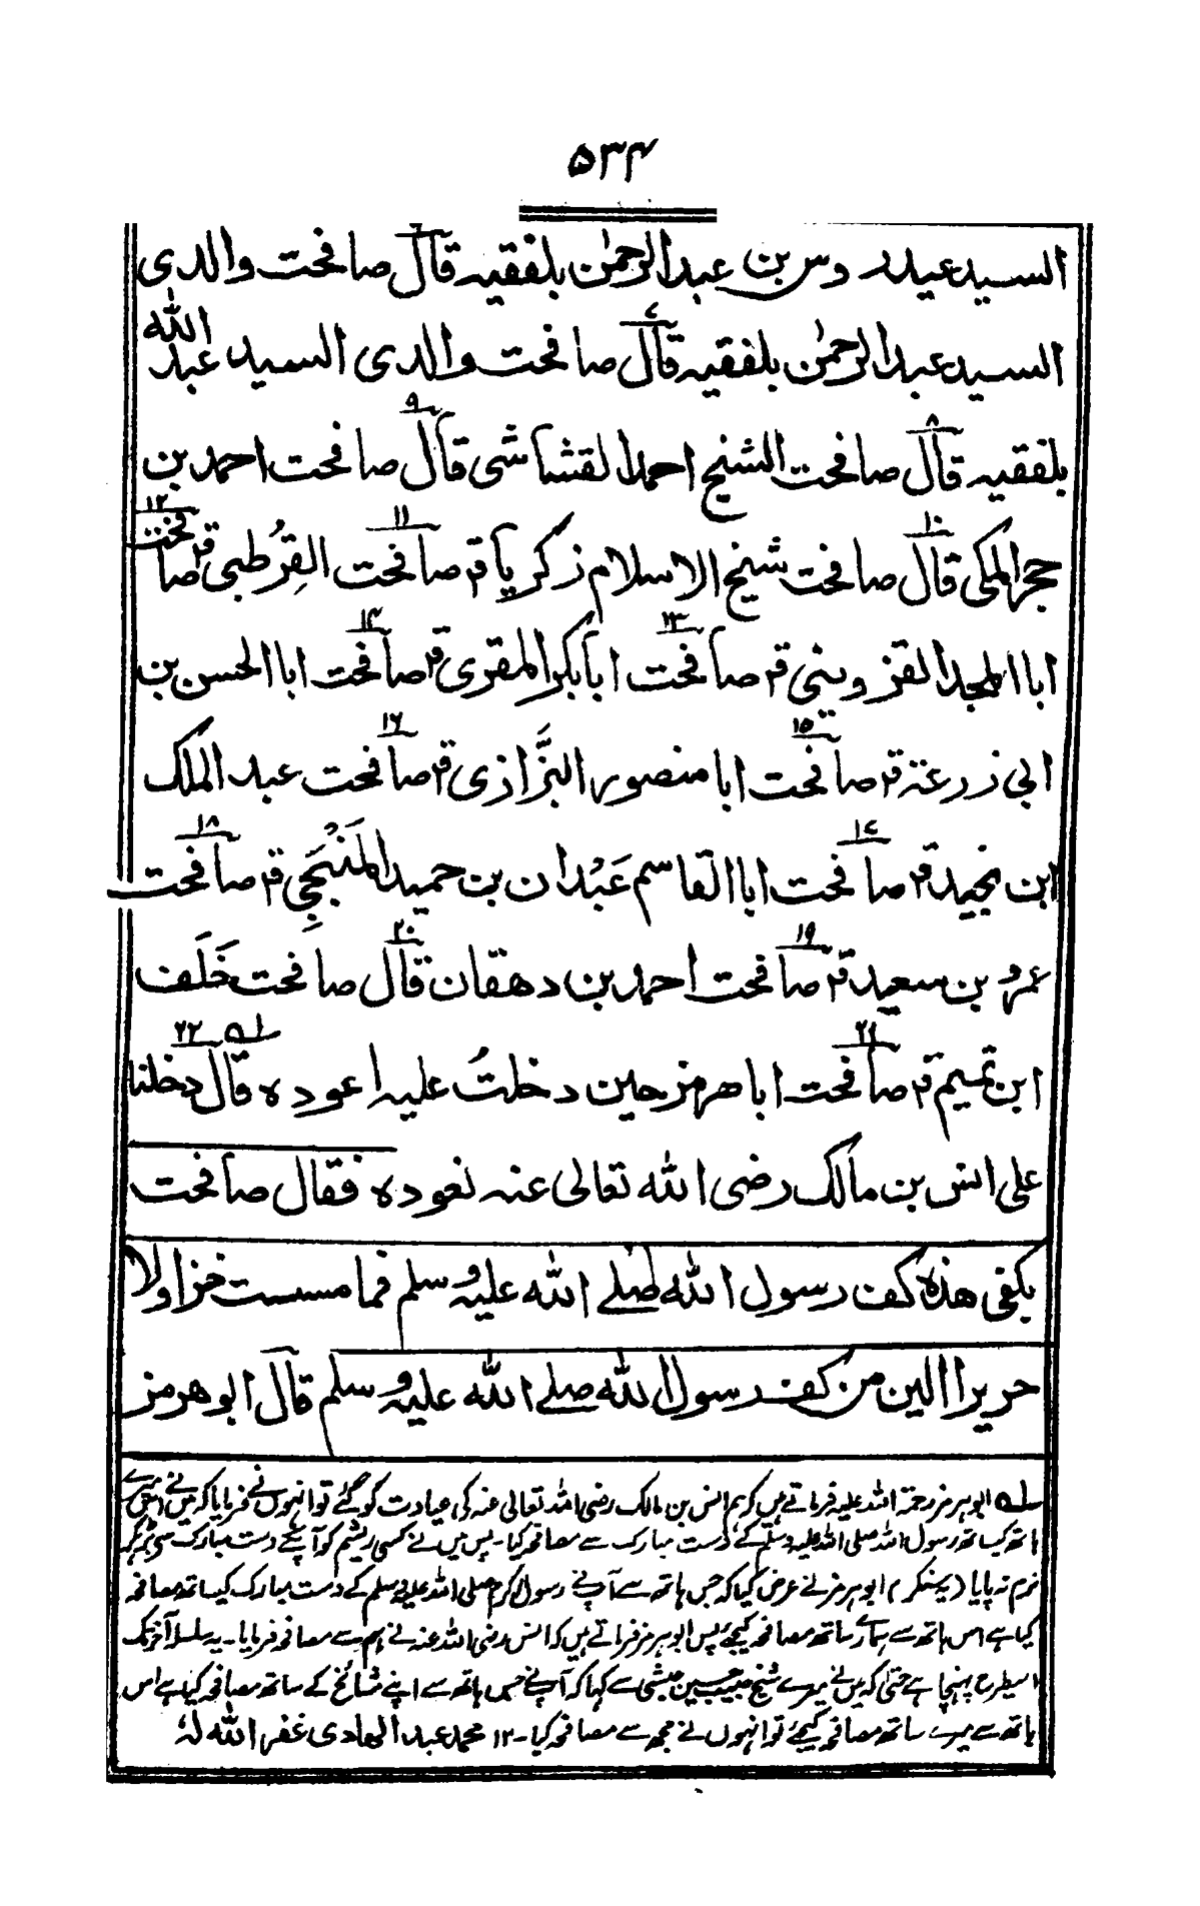 ۵۳۴
السيد عيدروس بن عبدالرحمٰن بلفقيه قال صافحت والدى
السيد عبدالرحمٰن بلفقيه قال صافحت والدى السيد عبدالله
بلفقيه قال صافحت الشيخ احمد القشاشى قال صافحت احمد بن
حجر المكى قال صافحت شيخ الاسلام زكريا قـ صافحت القِرُطبى قـ صافحت
ابا المجد القزوينى قـ صافحت ابابكر المقرى قـ صافحت ابا الحسن بن
ابى زرعة قـ صافحت ابا منصور البَّزازى قـ صافحت عبد الملك
ابن نجيد قـ صافحت ابا القاسم عَبْدان بن حميد المَنْبَجِي قـ صافحت
عمرو بن سعيد قـ صافحت احمد بن دهقان قال صافحت خَلَف
ابن تميم قـ صافحت اباهرمز حين دخلتُ عليه اعوده قال دخلنا
على انس بن مالك رضى الله تعالى عنه نعوده فقال صافحت
بكفى هذه كف رسول الله صلے الله عليه وسلم فما مسست خزا ولا
حريرا الين من كف رسول الله صلے الله عليه وسلم قال ابوهرمز
لـه ابوہرمز رحمۃ اللہ علیہ فرماتے ہیں کہ ہم انس بن مالک رضی اللہ تعالی عنہ کی عیادت کو گئے تو انہوں نے فرمایا کہ میں نے اپنے
ہاتھ کیساتھ رسول اللہ صلی اللہ علیہ وسلم کے دست مبارک سے مصافحہ کیا۔ پس میں نے کسی ریشم کو آپ کے دست مبارک سے بڑھ کر
نرم نہ پایا (یہ سنکر) ابوہرمز نے عرض کیا کہ جس ہاتھ سے آپ نے رسول اکرم صلی اللہ علیہ وسلم کے دست مبارک کیساتھ مصافحہ
کیا ہے اس ہاتھ سے ہمارے ساتھ مصافحہ کیجئے پس ابوہرمز فرماتے ہیں کہ انس رضی اللہ عنہ نے ہم سے مصافحہ فرمایا۔ یہ سلسلہ آخر تک
اسیطرح پہنچا ہے حتیٰ کہ میں نے میرے شیخ حبیب حسین حبشی سے کہا کہ آپ نے جس ہاتھ سے اپنے مشائخ کے ساتھ مصافحہ کیا ہے اس
ہاتھ سے میرے ساتھ مصافحہ کیجئے تو انہوں نے مجھ سے مصافحہ کیا۔ ۱۲ محمد عبد الهادى غفر الله لہٗ